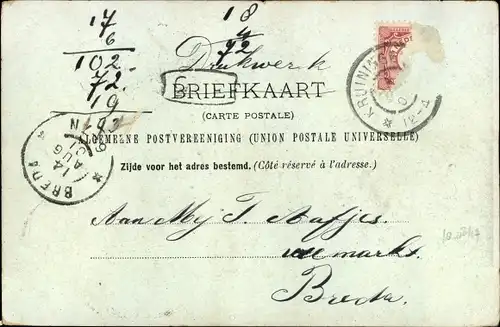 17
6
102
72
19
18
4
72
Drukwerk
BRIEFKAART
(CARTE POSTALE)
ALGEMEENE POSTVEREENIGING (UNION POSTALE UNIVERSELLE)
Zijde voor het adres bestemd. (Côté réservé à l'adresse.)
KRUININGEN
12-4
BREDA
14
AUG
Aan Mej T. Aafjes.
markt
Breda.